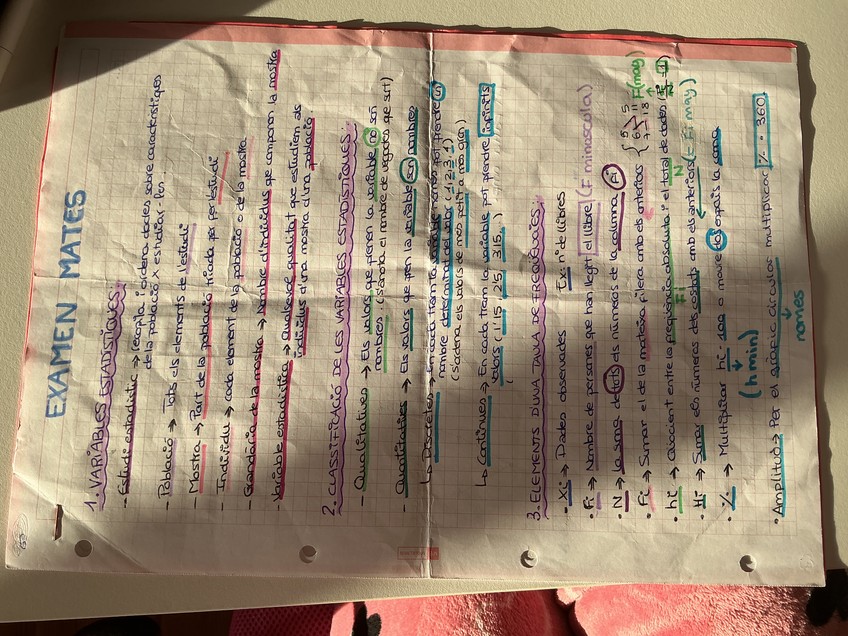 EXAMEN MATES
1. VARIABLES ESTADÍSTIQUES:
- Estudi estadístic → recopila i ordena dades sobre característiques
de la població x estudiar-les.
- Població → Tots els elements de l'estudi
- Mostra → Part de la població triada per per l'estudi
- Individu → cada element de la població o de la mostra
- Grandària de la mostra → Nombre d'individus que componen la mostra
- Variable estadística → Qualsevol qualitat que estudiem als
individus d'una mostra d'una població
2. CLASSIFICACIÓ DE LES VARIABLES ESTADÍSTIQUES:
- Qualitatives → Els valors que prenen la variable no són
nombres (s'anota el nombre de vegades que surt)
- Quantitatives → Els valors que pren la variable són nombres
↳ Discretes → En cada tram la variable només pot prendre un
nombre determinat del valor (1, 2, 3, 4)
(s'ordena els valors de més petit a més gran)
↳ Continues → En cada tram la variable pot prendre infinits
valors (1'15, 2'5, 3'15...)
3. ELEMENTS D'UNA TAULA DE FREQÜÈNCIES
• Xi → Dades observades Ex: nº de llibres
• Fi → Nombre de persones que han llegit el llibre (F minúscula)
• N → la suma de tots els números de la columna Fi
• Fi → Sumar el de la mateixa filera amb els anteriors { 5 6 7 > 5 11 18 F(maj)
• hi → Quocient entre la freqüència absoluta i el total de dades (Fi/N = 1)
Fi N
• Hi → Sumar els números dels costats amb els anteriors (= Fi maj)
• % → Multiplicar hi · 100 o moure dos espais la coma
(h min)
• Amplitud → Per el gràfic circular multiplicar % · 360
només